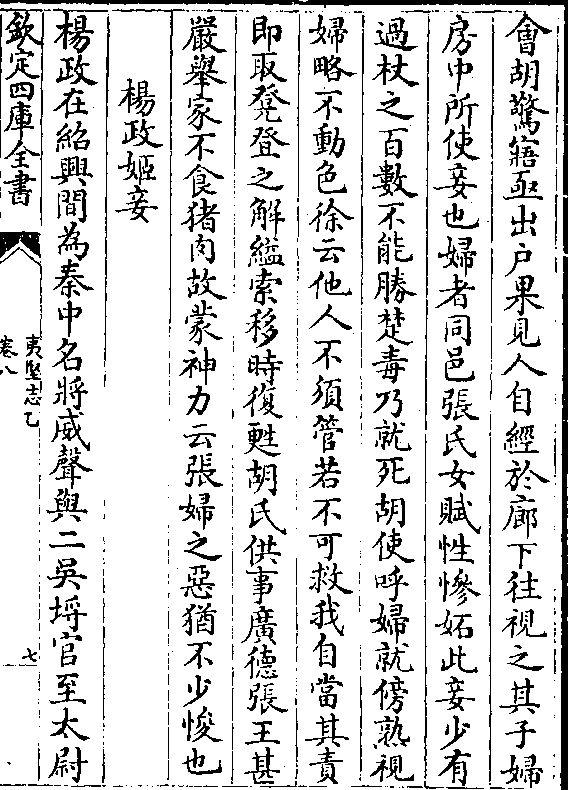 會胡驚寤亟出户果見人自經於廊下往視之其子婦
房中所使妾也婦者同邑張氏女賦性慘妬此妾少有
過杖之百數不能勝楚毒乃就死胡使呼婦就傍熟視
婦略不動色徐云他人不須管若不可救我自當其責
即取凳登之解縊索移時復甦胡氏供事廣德張王甚
嚴舉家不食猪肉故蒙神力云張婦之惡猶不少悛也
楊政姬妾
楊政在紹興間為秦中名將威聲與二吳埒官至太尉
欽定四庫全書
夷堅志乙
卷八
七